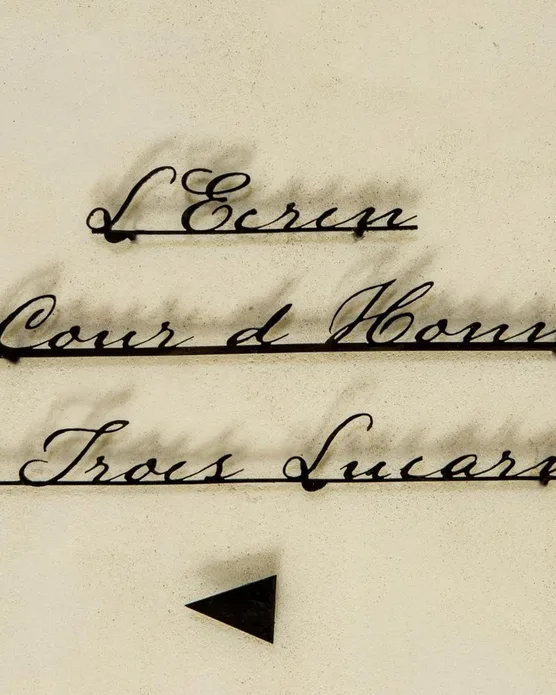 L'Ecrin
Cour d Honn
Trois Lucarn